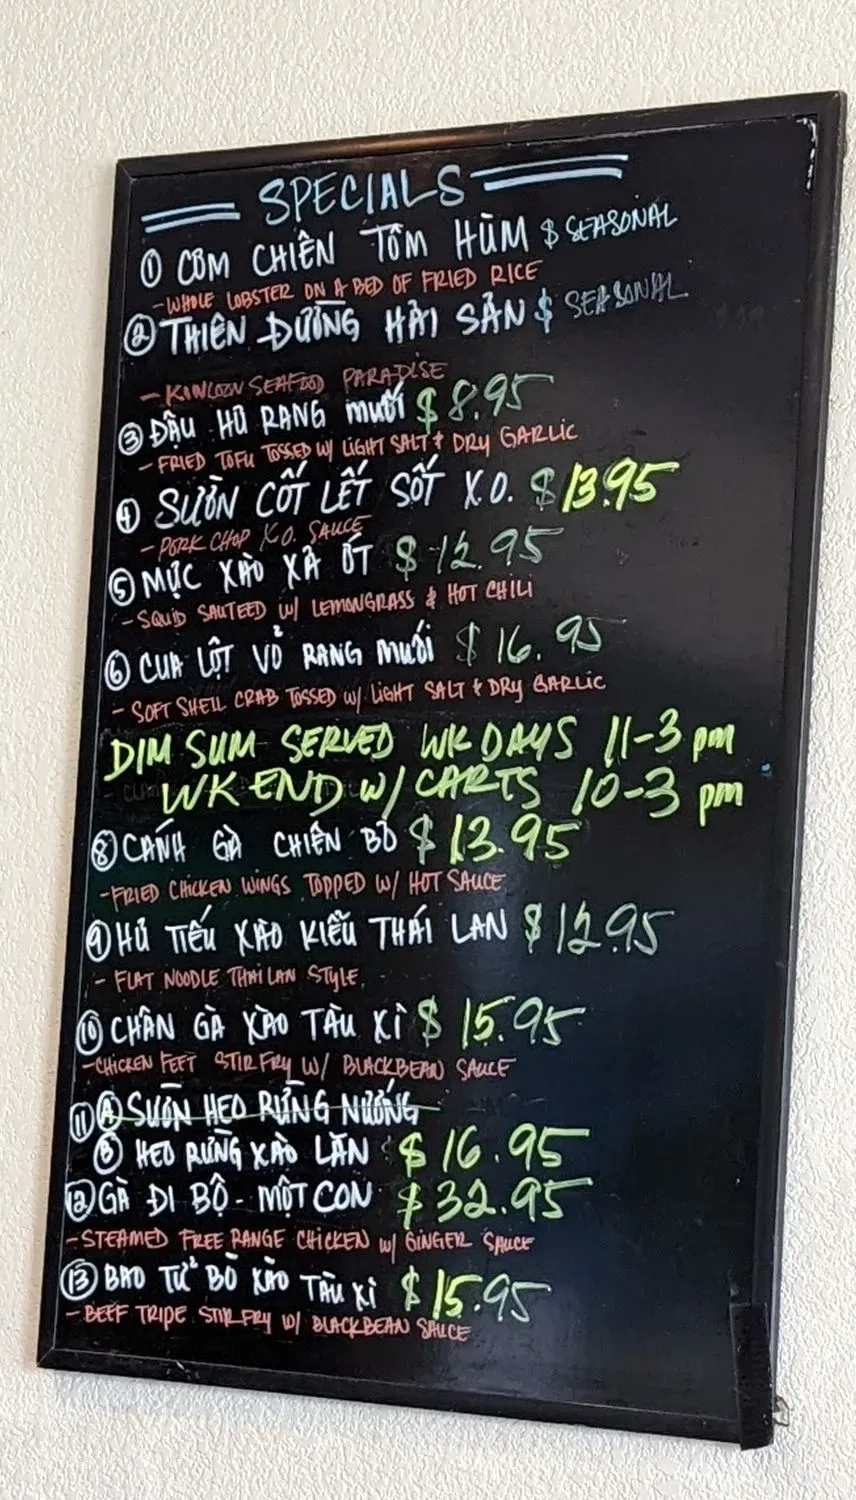 SPECIALS
① CƠM CHIÊN TÔM HÙM $ SEASONAL
- WHOLE LOBSTER ON A BED OF FRIED RICE
② THIÊN ĐƯỜNG HẢI SẢN $ SEASONAL
- KINLOON SEAFOOD PARADISE
③ ĐẬU HŨ RANG MUỐI $ 8.95
- FRIED TOFU TOSSED W/ LIGHT SALT & DRY GARLIC
④ SƯỜN CỐT LẾT SỐT X.O. $ 13.95
- PORK CHOP X.O. SAUCE
⑤ MỰC XÀO XẢ ỚT $ 12.95
- SQUID SAUTEED W/ LEMONGRASS & HOT CHILI
⑥ CUA LỘT VỎ RANG MUỐI $ 16.95
- SOFT SHELL CRAB TOSSED W/ LIGHT SALT & DRY GARLIC
DIM SUM SERVED WK DAYS 11-3 pm
WK END W/ CARTS 10-3 pm
⑧ CÁNH GÀ CHIÊN BƠ $ 13.95
- FRIED CHICKEN WINGS TOPPED W/ HOT SAUCE
⑨ HỦ TIẾU XÀO KIỂU THÁI LAN $ 12.95
- FLAT NOODLE THAILAN STYLE
⑩ CHÂN GÀ XÀO TÀU XÌ $ 15.95
- CHICKEN FEET STIR FRY W/ BLACKBEAN SAUCE
⑪ Ⓐ SƯỜN HEO RỪNG NƯỚNG
Ⓑ HEO RỪNG XÀO LĂN $ 16.95
⑫ GÀ ĐI BỘ - MỘT CON $ 32.95
- STEAMED FREE RANGE CHICKEN W/ GINGER SAUCE
⑬ BAO TỬ BÒ XÀO TÀU XÌ $ 15.95
- BEEF TRIPE STIR FRY W/ BLACKBEAN SAUCE